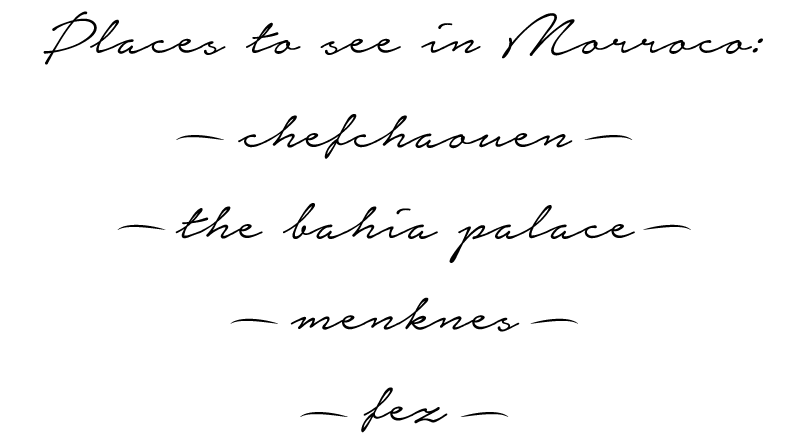 Places to see in Morroco:
- chefchaouen -
- the bahia palace -
- menknes -
- fez -